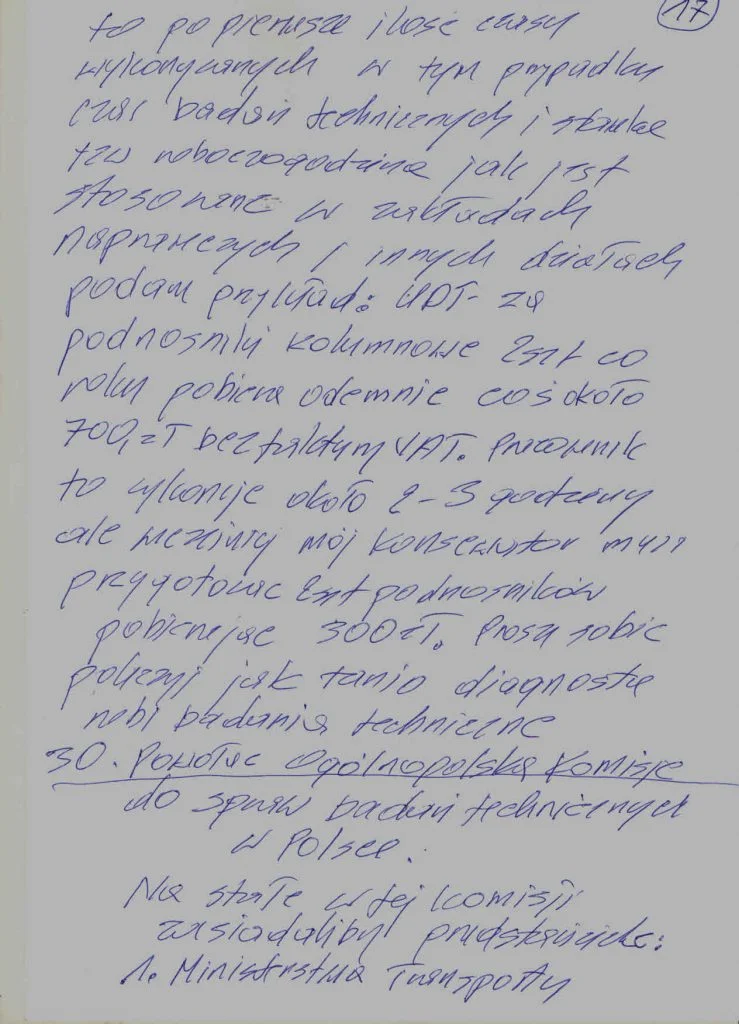 17
to po pierwsze ilość czasu
wykonywanych w tym przypadku
czas badań technicznych i stawka
tzw roboczogodzina jak jest
stosowane w zakładach
naprawczych i innych działach
podam przykład: UDT za
podnośniki kolumnowe 2szt co
roku pobiera odemnie coś około
700,-zł bez faktury VAT. Pracownik
to wykonuje około 2-3 godziny
ale wcześniej mój konserwator musi
przygotować 2szt podnośników
pobierając 300zł. Proszę sobie
policzyć jak tanio diagnosta
robi badania techniczne
30. Powołać Ogólnopolską Komisję
do spraw badań technicznych
w Polsce.
Na stałe w tej komisji
zasiadaliby przedstawiciele:
1. Ministerstwa Transportu